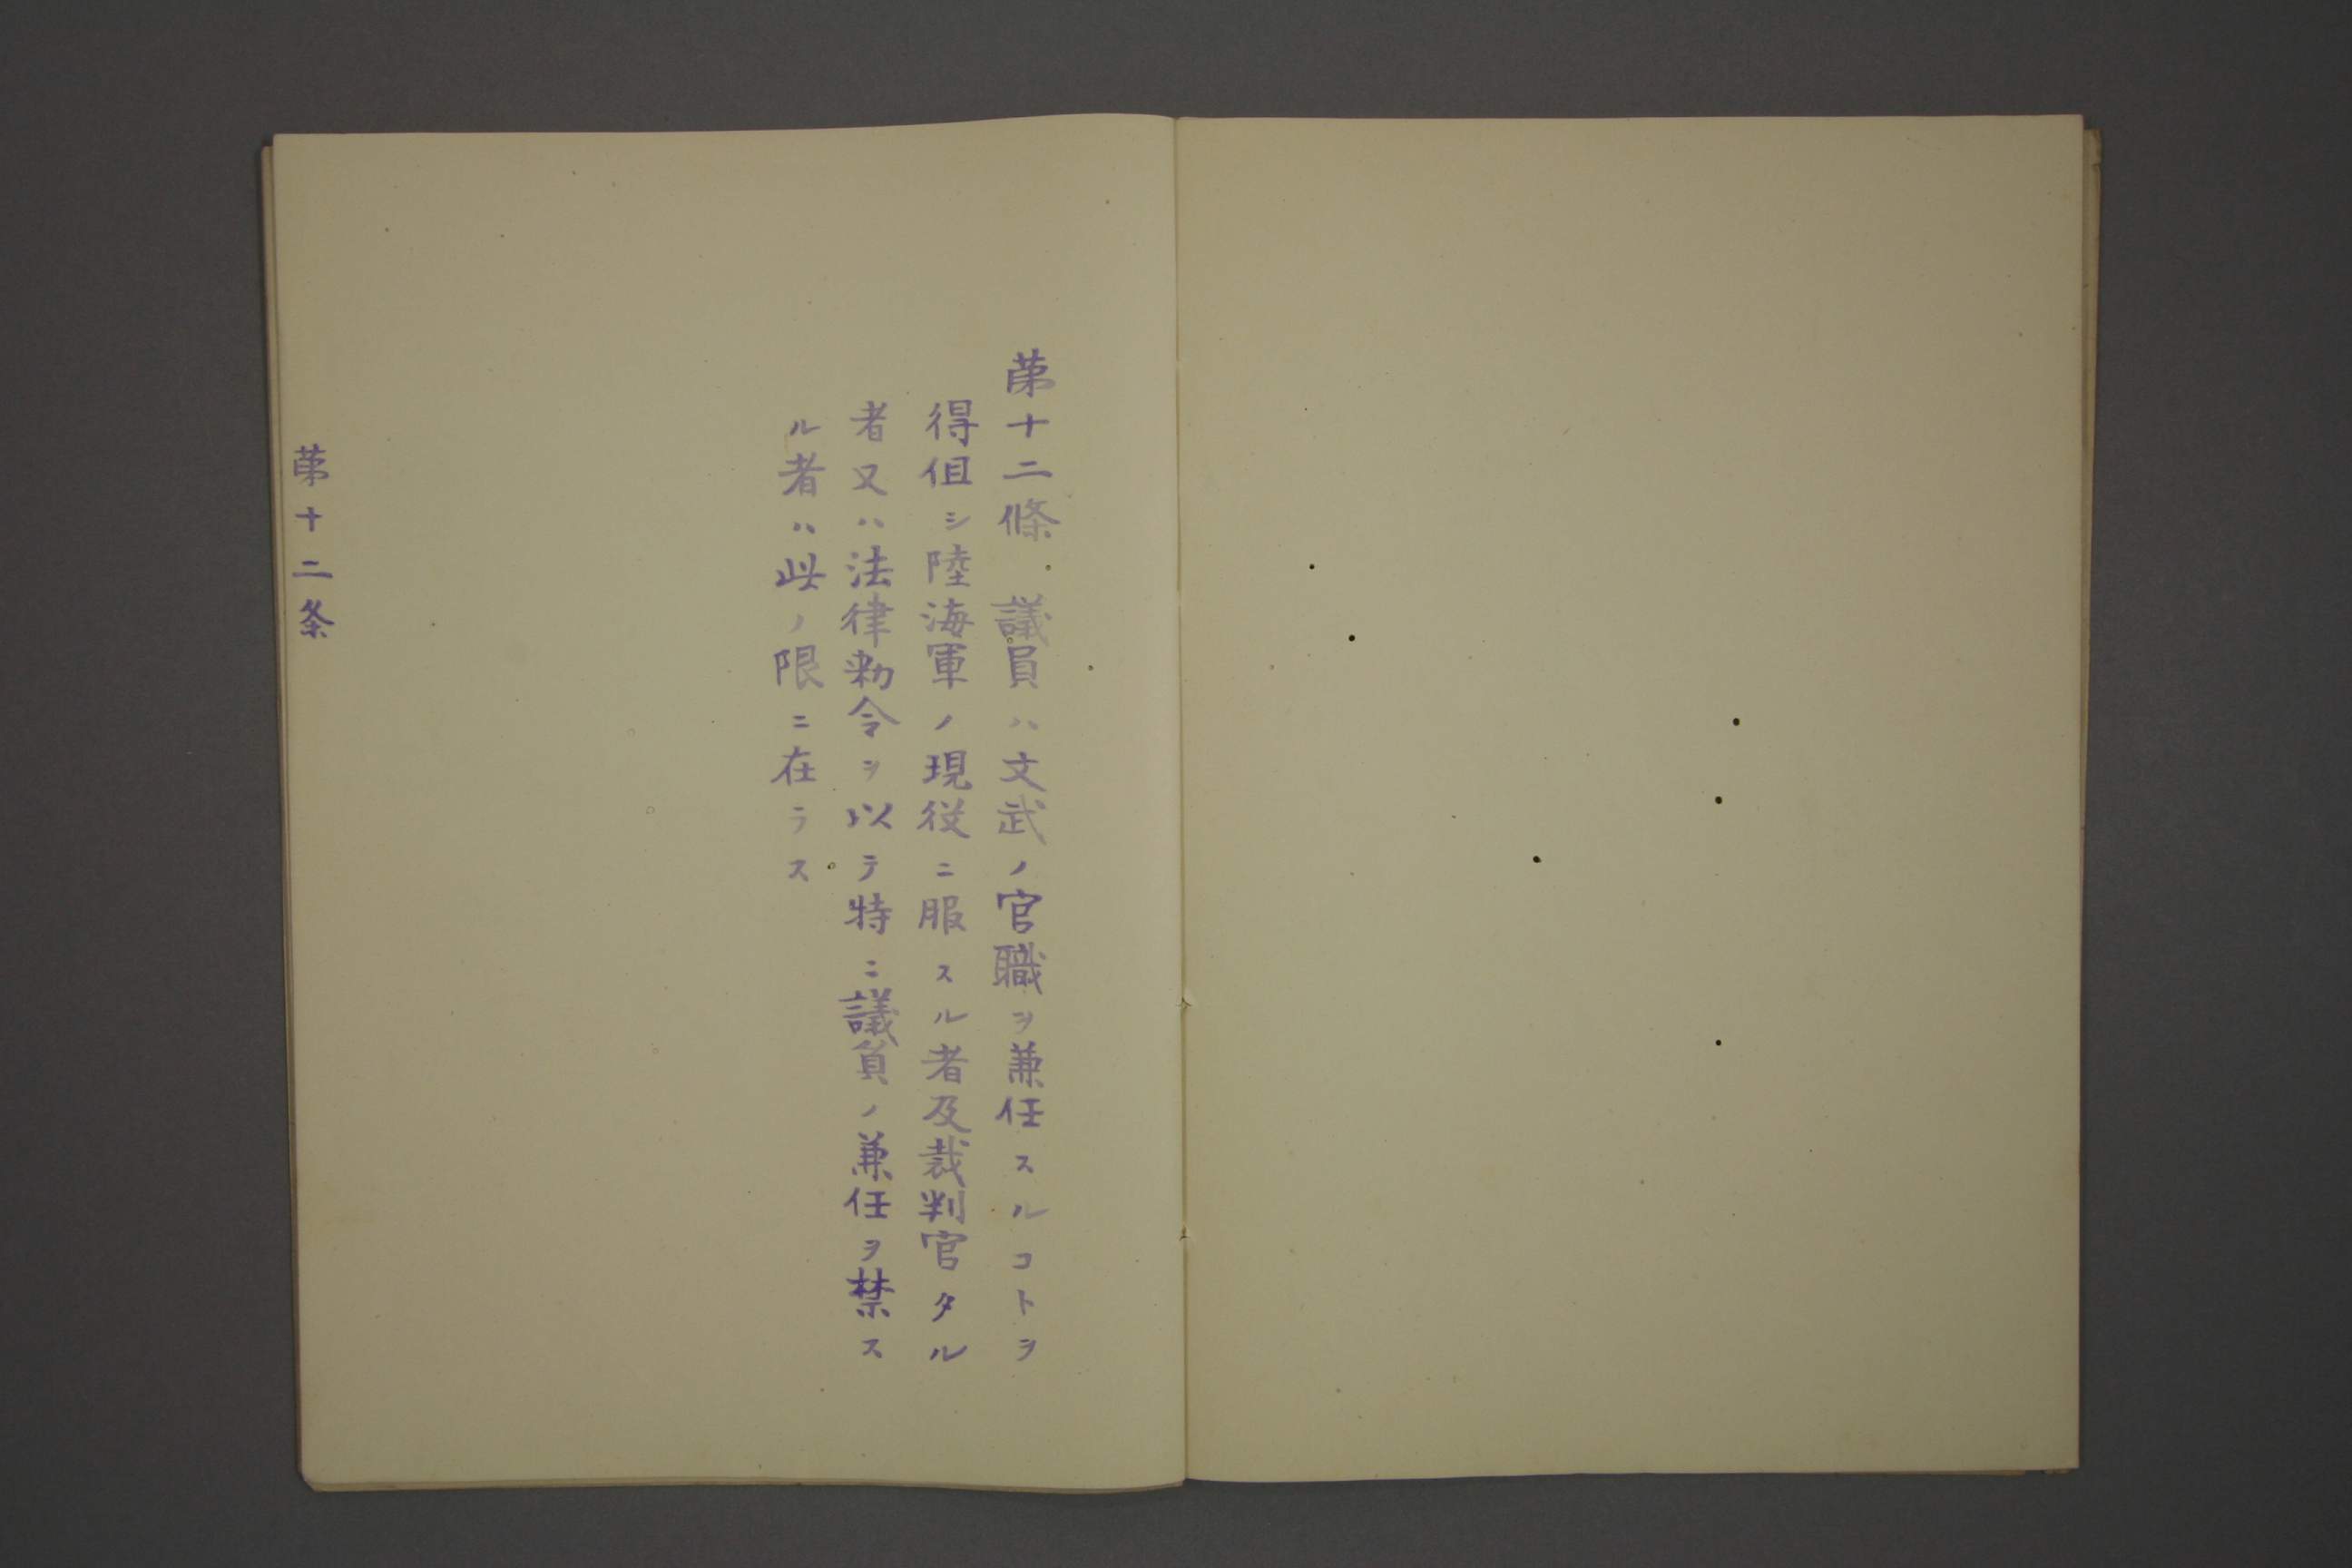 第十二條 議員ハ文武ノ官職ヲ兼任スルコトヲ
得但シ陸海軍ノ現役ニ服スル者及裁判官タル
者又ハ法律勅令ヲ以テ特ニ議員ノ兼任ヲ禁ス
ル者ハ此ノ限ニ在ラス
第十二条